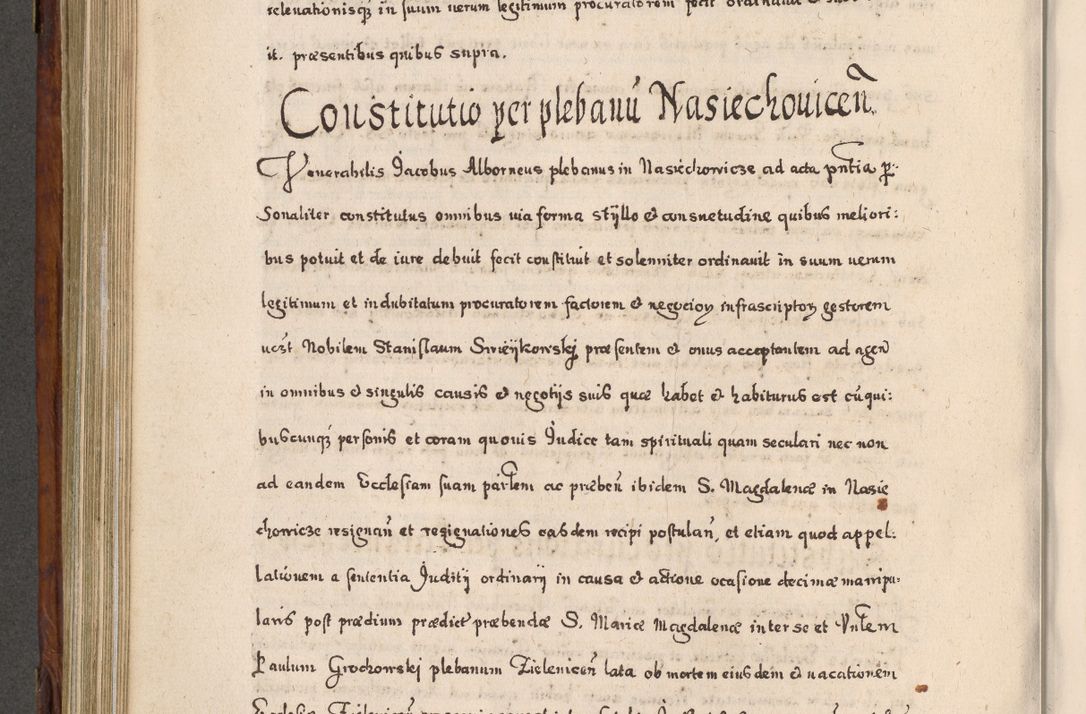 relevationisq₃ in suum verum legitimum procuratorem fecit ordinavit
it. præsentibus quibus supra.
Constitutio per plebanū Nasiechoviceñ.
Venerabilis Jacobus Alborneus plebanus in Nasiechowicze ad acta pñtia per-
sonaliter constitutus omnibus via forma styllo & consuetudine quibus meliori:
bus potuit et de iure debuit fecit constituit et solenniter ordinavit in suum verum
legitimum et indubitatum procuratorem factorem & negocioꝝ infrascriptoꝝ gestorem
ucꝫt Nobilem Stanislaum Swieÿkowskj præsentem & onus acceptantem ad agen̄
in omnibus & singulis causis & negotijs suis quæ habet & habiturus est cū qui:
buscunq₃ personis et coram quovis Judice tam spirituali quam seculari nec non
ad eandem Ecclesiam suam parlem ac præben̄ ibidem S. Magdalenæ in Nasie
chowicze resignan̄ et resignationes easdem recipi postulan̄, et etiam quod appel:
lationem a sententia Juditij ordinarij in causa & actione ocasione decimæ manipu:
laris post prædium prædict præbendæ S. Mariæ Magdalenæ inter se et Vnlem
Paulum Grochowskj plebanum Zieleniceñ lata ob mortem eiusdem & vacationem